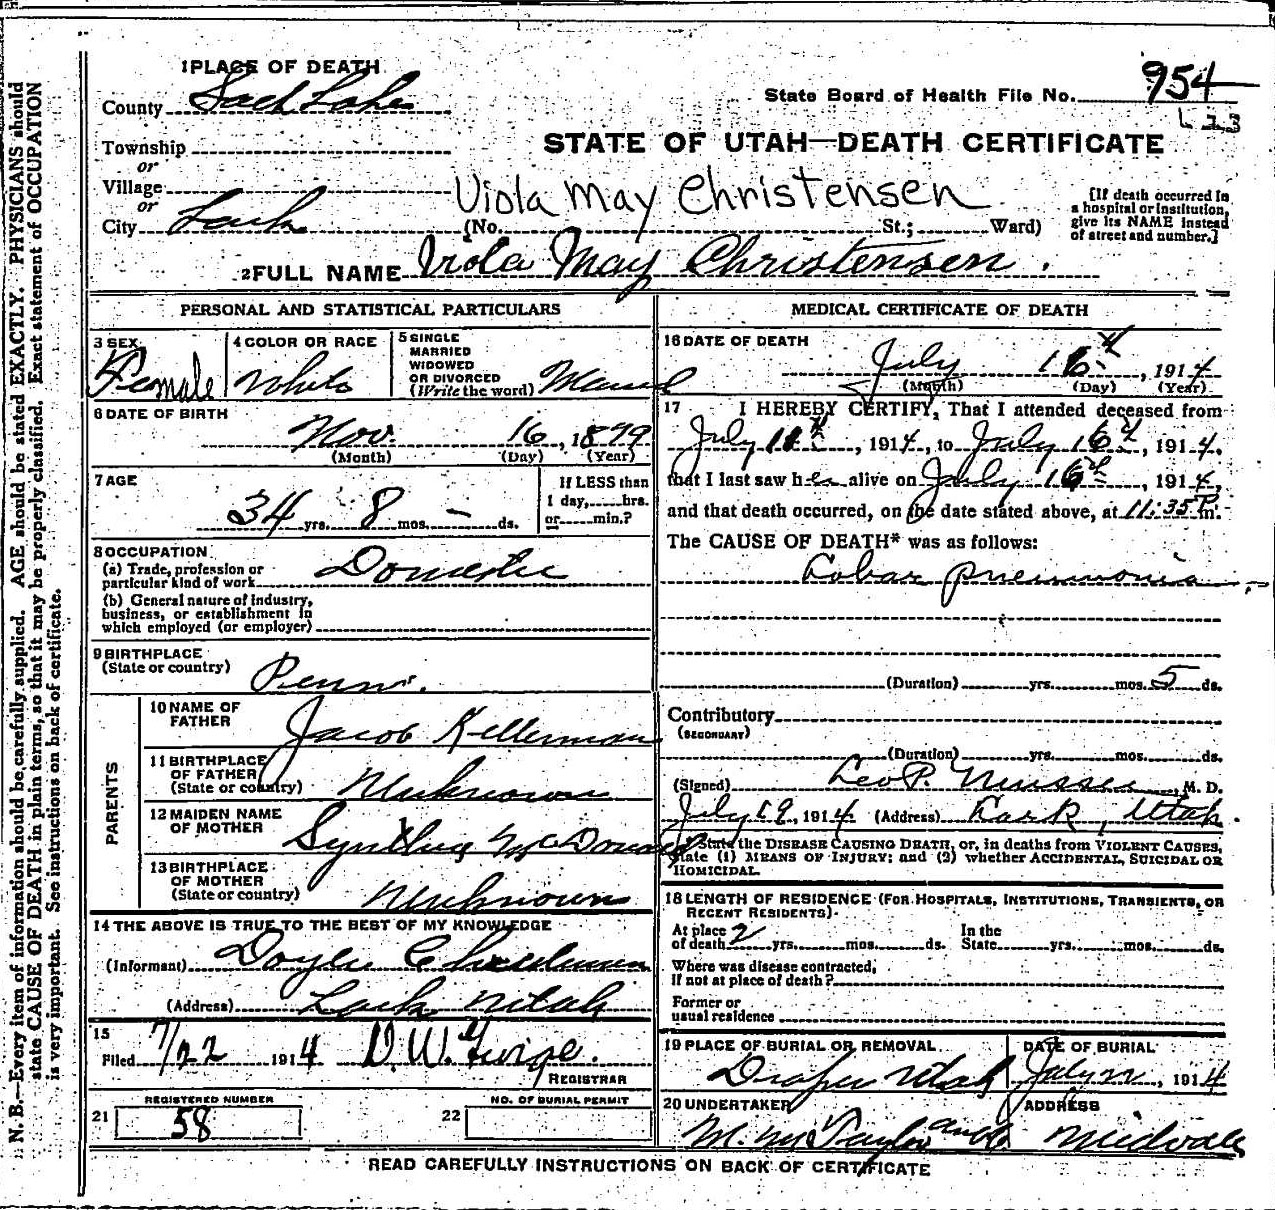 1 PLACE OF DEATH
County Salt Lake
State Board of Health File No. 954
Township
or
STATE OF UTAH—DEATH CERTIFICATE
Village
or
Viola May Christensen
City Lark (No. St.; Ward)
[If death occurred in a hospital or institution, give its NAME instead of street and number.]
2 FULL NAME Viola May Christensen.
PERSONAL AND STATISTICAL PARTICULARS
3 SEX Female
4 COLOR OR RACE White
5 SINGLE MARRIED WIDOWED OR DIVORCED (Write the word) Married
6 DATE OF BIRTH
Nov. 16, 1879
(Month) (Day) (Year)
7 AGE
34 yrs. 8 mos. – ds.
If LESS than 1 day, hrs. or min.?
8 OCCUPATION
(a) Trade, profession or particular kind of work Domestic
(b) General nature of industry, business, or establishment in which employed (or employer)
9 BIRTHPLACE
(State or country) Penn.
PARENTS
10 NAME OF FATHER Jacob Kellerman
11 BIRTHPLACE OF FATHER (State or country) Unknown
12 MAIDEN NAME OF MOTHER Synthia McDonald
13 BIRTHPLACE OF MOTHER (State or country) Unknown
14 THE ABOVE IS TRUE TO THE BEST OF MY KNOWLEDGE
(Informant) Doyle Christensen
(Address) Lark Utah
15
Filed 7/22 1914 D. W.
REGISTRAR
REGISTERED NUMBER
21 58
NO. OF BURIAL PERMIT
22
MEDICAL CERTIFICATE OF DEATH
16 DATE OF DEATH
July 16th, 1914
(Month) (Day) (Year)
17 I HEREBY CERTIFY, That I attended deceased from
July 11th, 1914, to July 16th, 1914,
that I last saw her alive on July 16th, 1914,
and that death occurred, on the date stated above, at 11:35 P. m.
The CAUSE OF DEATH* was as follows:
Lobar pneumonia
(Duration) yrs. mos. 5 ds.
Contributory
(SECONDARY)
(Duration) yrs. mos. ds.
(Signed) Leo P. Musser, M. D.
July 19, 1914 (Address) Lark, Utah.
*State the DISEASE CAUSING DEATH, or, in deaths from VIOLENT CAUSES, state (1) MEANS OF INJURY; and (2) whether ACCIDENTAL, SUICIDAL OR HOMICIDAL.
18 LENGTH OF RESIDENCE (FOR HOSPITALS, INSTITUTIONS, TRANSIENTS, OR RECENT RESIDENTS).
At place of death 2 yrs. mos. ds. In the State yrs. mos. ds.
Where was disease contracted, if not at place of death?
Former or usual residence
19 PLACE OF BURIAL OR REMOVAL
Draper Utah
DATE OF BURIAL
July, 1914
20 UNDERTAKER
Taylor and Co.
ADDRESS
Midvale
READ CAREFULLY INSTRUCTIONS ON BACK OF CERTIFICATE
N. B.—Every item of information should be carefully supplied. AGE should be stated EXACTLY. PHYSICIANS should
state CAUSE OF DEATH in plain terms, so that it may be properly classified. Exact statement of OCCUPATION
is very important. See instructions on back of certificate.